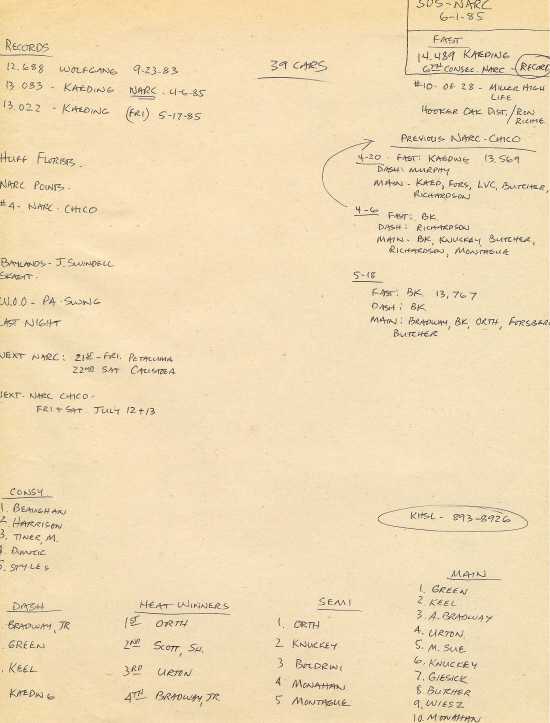 SOS-NARC
6-1-85
FAST
14.489 KAEDING
6TH CONSEC. NARC - RECORD
#10 OF 28 - MILLER HIGH
LIFE
HOOKER OAK DIST. / RON
RITCHIE
RECORDS
12.688 WOLFGANG 9-23-83
13.083 - KAEDING NARC 4-6-85
13.022 - KAEDING (FRI) 5-17-85
39 CARS
PREVIOUS NARC-CHICO
4-20 - FAST: KAEDING 13.569
DASH: MURPHY
MAIN - KAED, FORS, LVC, BUTCHER,
RICHARDSON
4-6 FAST: BK
DASH: RICHARDSON
MAIN - BK, KNUCKEY, BUTCHER,
RICHARDSON, MONTAGUE
5-18
FAST: BK 13,767
DASH: BK
MAIN: BRADWAY, BK, ORTH, FORSBERG
BUTCHER
HUFF FLORISTS.
NARC POINTS.
#4 - NARC - CHICO
BAYLANDS - J. SWINDELL
SKAGIT.
W.O.O - PA - SWING
LAST NIGHT
NEXT NARC: 21ST - FRI. PETALUMA
22ND SAT CALISTOGA
NEXT NARC CHICO -
FRI + SAT JULY 12 + 13
KHSL - 893-8926
CONSY
1. BEAUGHAN
2. HARRISON
3. TINER, M.
4.
5. STYLES
DASH
BRADWAY, JR
GREEN
KEEL
KAEDING
HEAT WINNERS
1ST ORTH
2ND SCOTT, SU.
3RD URTON
4TH BRADWAY, JR
SEMI
1. ORTH
2 KNUCKEY
3 BOLDRINI
4 MONAHAN
5 MONTAGUE
MAIN
1. GREEN
2. KEEL
3. A. BRADWAY
4. URTON
5. M. SUE
6. KNUCKEY
7. GIESICK
8. BUTCHER
9. WIESZ
10. MONAHAN